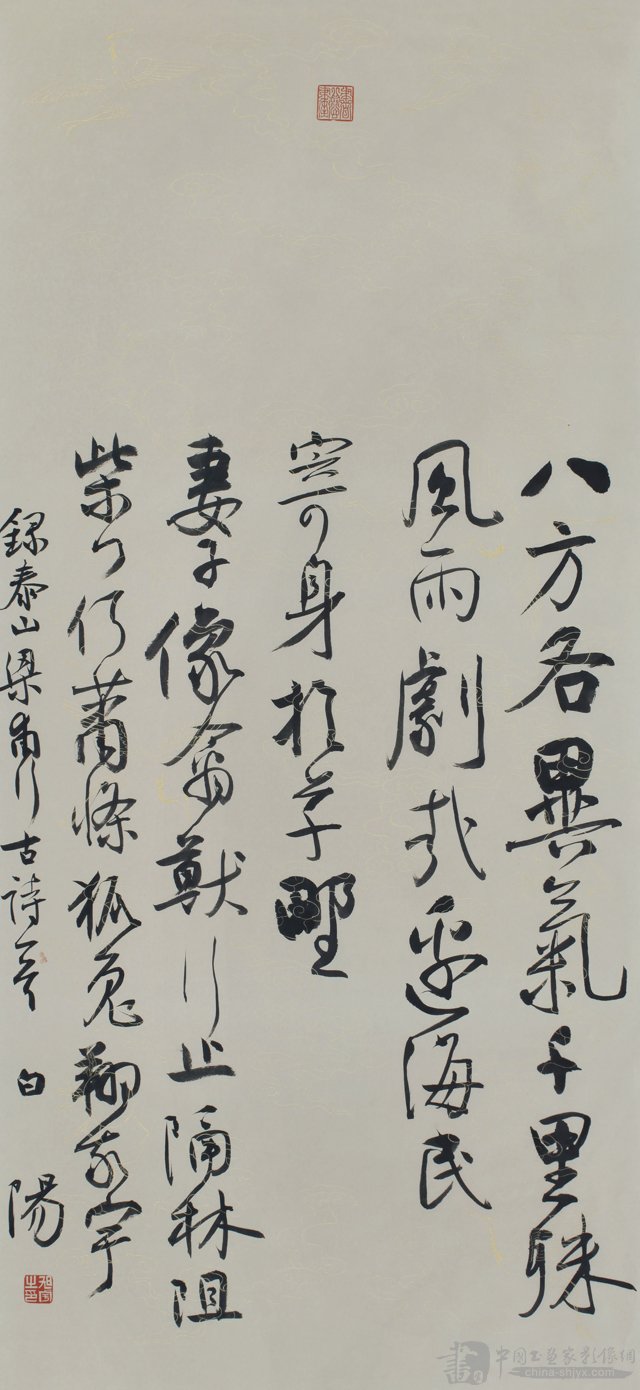 八方各異氣千里殊
風雨劇哉邊海民
寄身於草野
妻子像禽獸行止隔林阻
柴門何蕭條狐兔翔我宇
錄泰山梁甫行古詩一首 白陽
旭宇之印
中國书画家影像網
china-shjyx.com